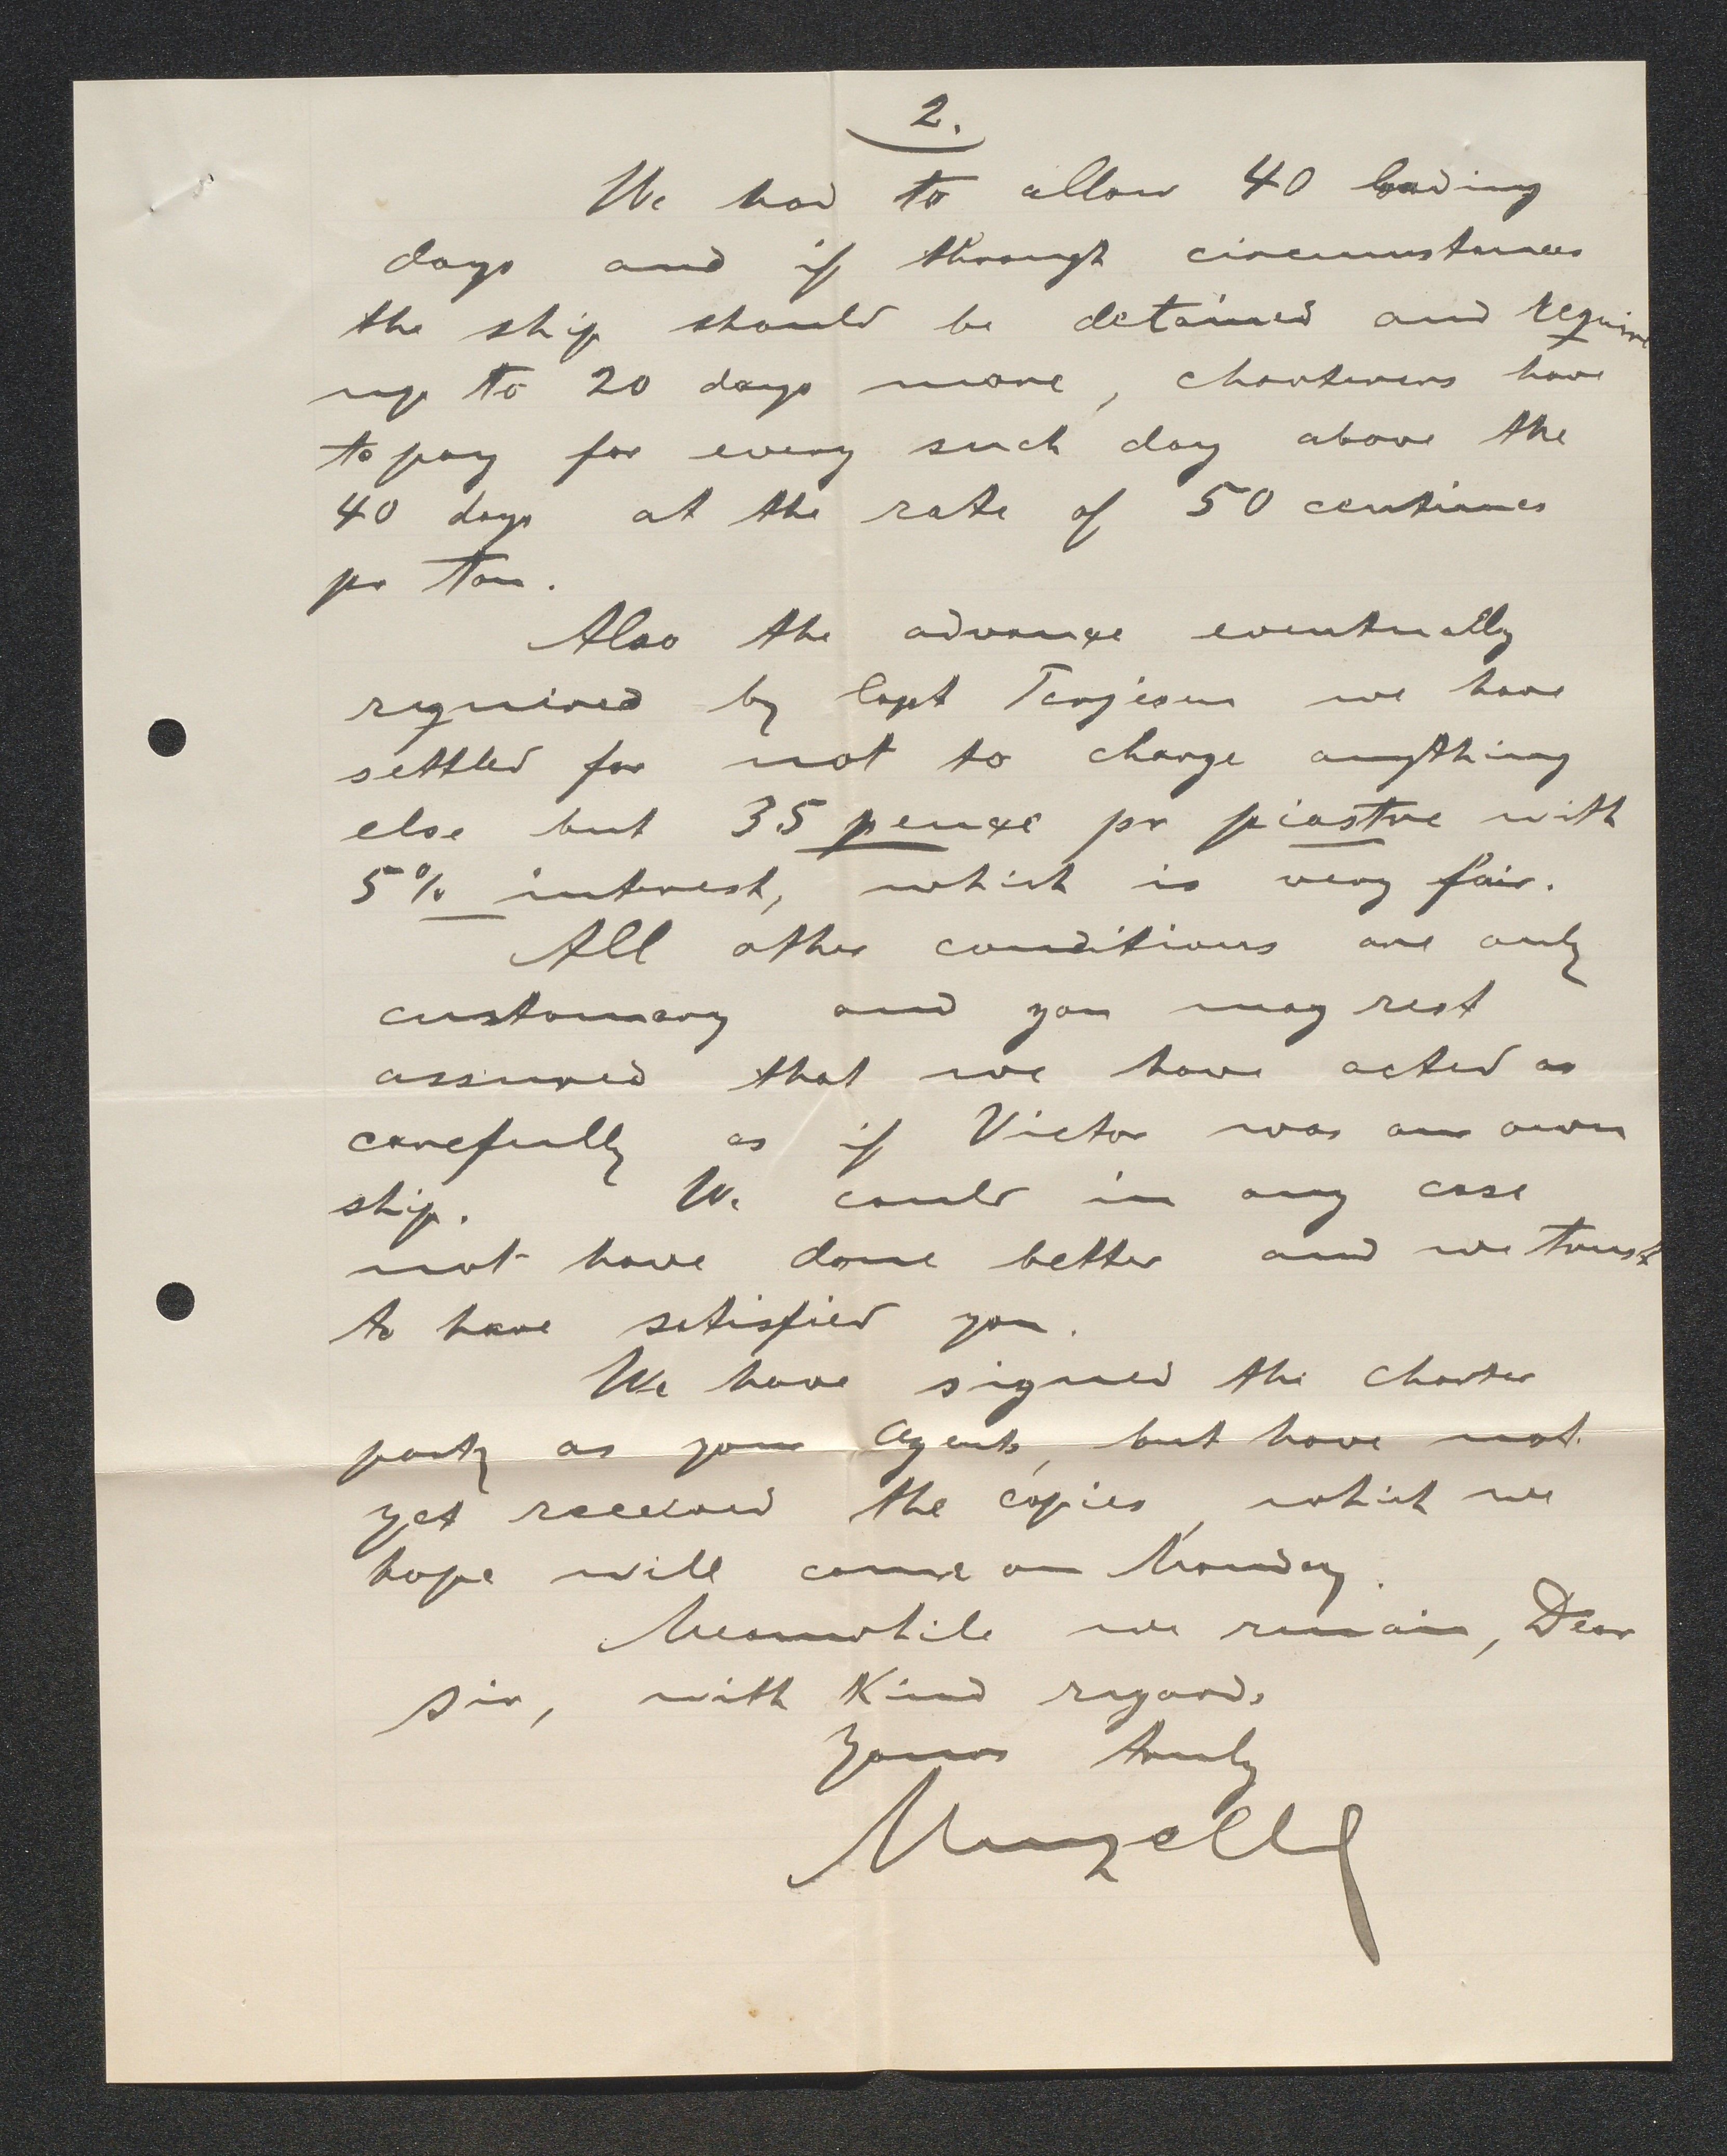 2.
We had to allow 40 loading
days and if through circumstances
the ship should be detained and require
up to 20 days more, charterers have
to pay for every such day above the
40 days at the rate of 50 centimes
pr ton.
Also the advance eventually
required by Capt Terjesen we have
settled for not to charge anything
else but 35 pence pr piastre with
5% interest, which is very fair.
All other conditions are only
customary and you may rest
assured that we have acted as
carefully as if Victor was our own
ship. We could in any case
not have done better and we trust
to have satisfied you.
We have signed the charter
party as your Agents, but have not
yet received the copies, which we
hope will come on Monday.
Meanwhile we remain, Dear
Sir, with Kind regards
Yours truly